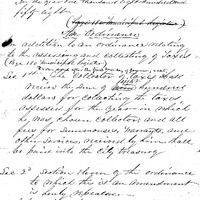 In the year one thousand eight hundred and
fifty eight
An Ordinance
In addition to an ordinance relating
to the assessing and collecting of Taxes
(Page 120 Municipal Register)
Sec 1st The Collector of Taxes shall
receive the sum of hundred
dollars for collecting the taxes
assessed for the year in which
he was chosen Collector and all
fees for Summonses, Warrants, and
other Services, received by him shall
be paid into the City treasury
Sec 2d Section of the ordinance
to which this is an Amendment
is hereby repealed